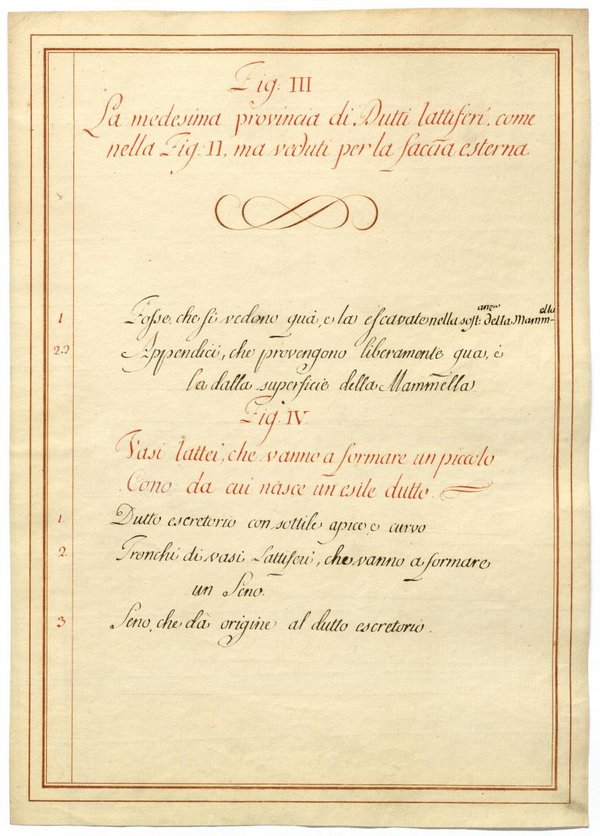 Fig. III
La medesima provincia di Dutti lattiferi, come
nella Fig: II, ma veduti per la faccia esterna.
1 Fosse, che si vedono quà, e la escavate nella sostanza della Mammella
2.2 Appendici, che provengono liberamente qua, e
la dalla superficie della Mammella
Fig. IV.
Vasi lattei, che vanno a formare un piccolo
Cono da cui nasce un esile dutto.
1. Dutto escretorio con sottile apice, e curvo
2. Tronchi di vasi Lattiferi, che vanno a formare
un Seno.
3 Seno, che dà origine al dutto escretorio.